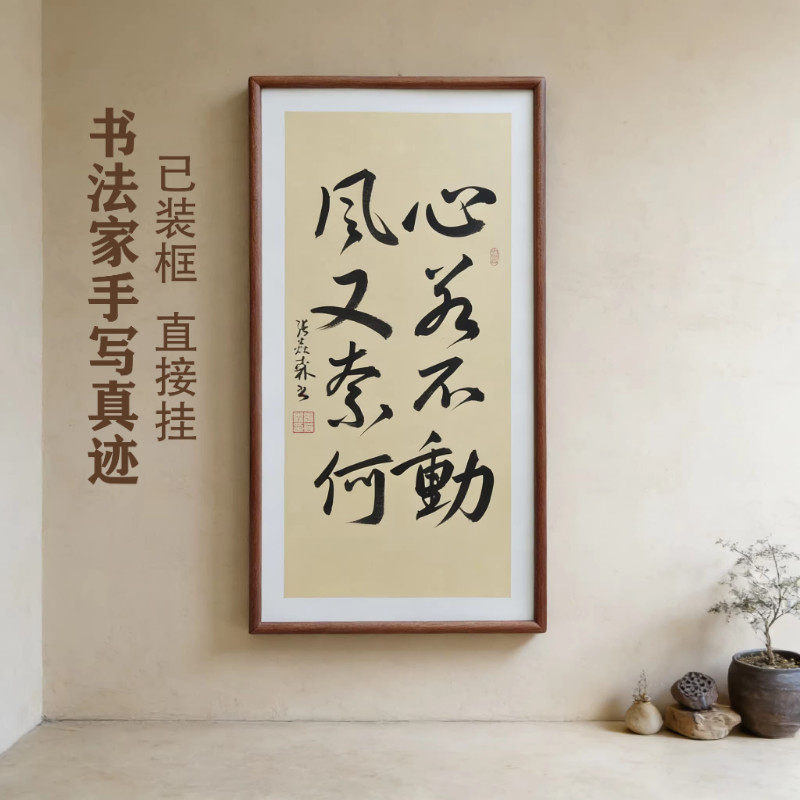 书法家手写真迹
已装框 直接挂
心若不動
風又奈何
张焱森书